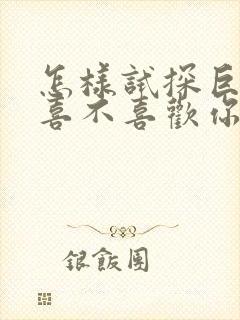 怎樣試探巨
喜不喜歡你
銀飯團